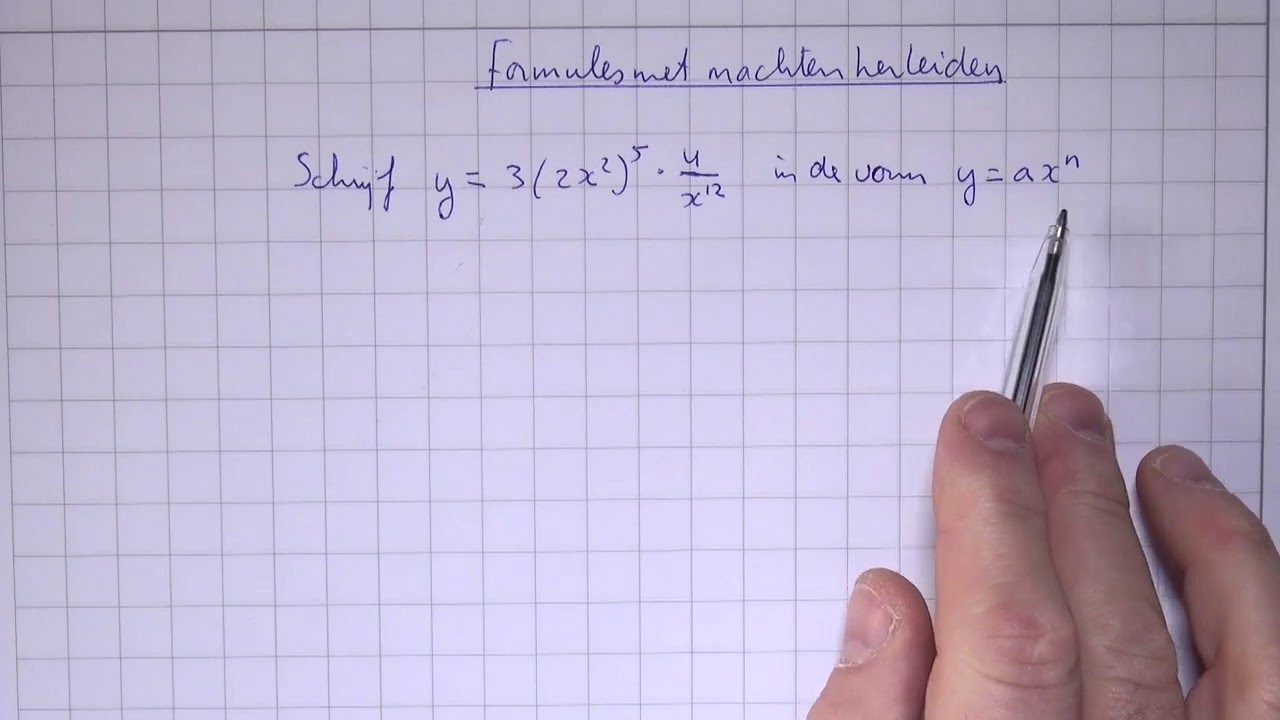 Formules met machten herleiden
Schrijf y = 3(2x²)⁵ · 4/x¹² in de vorm y = axⁿ